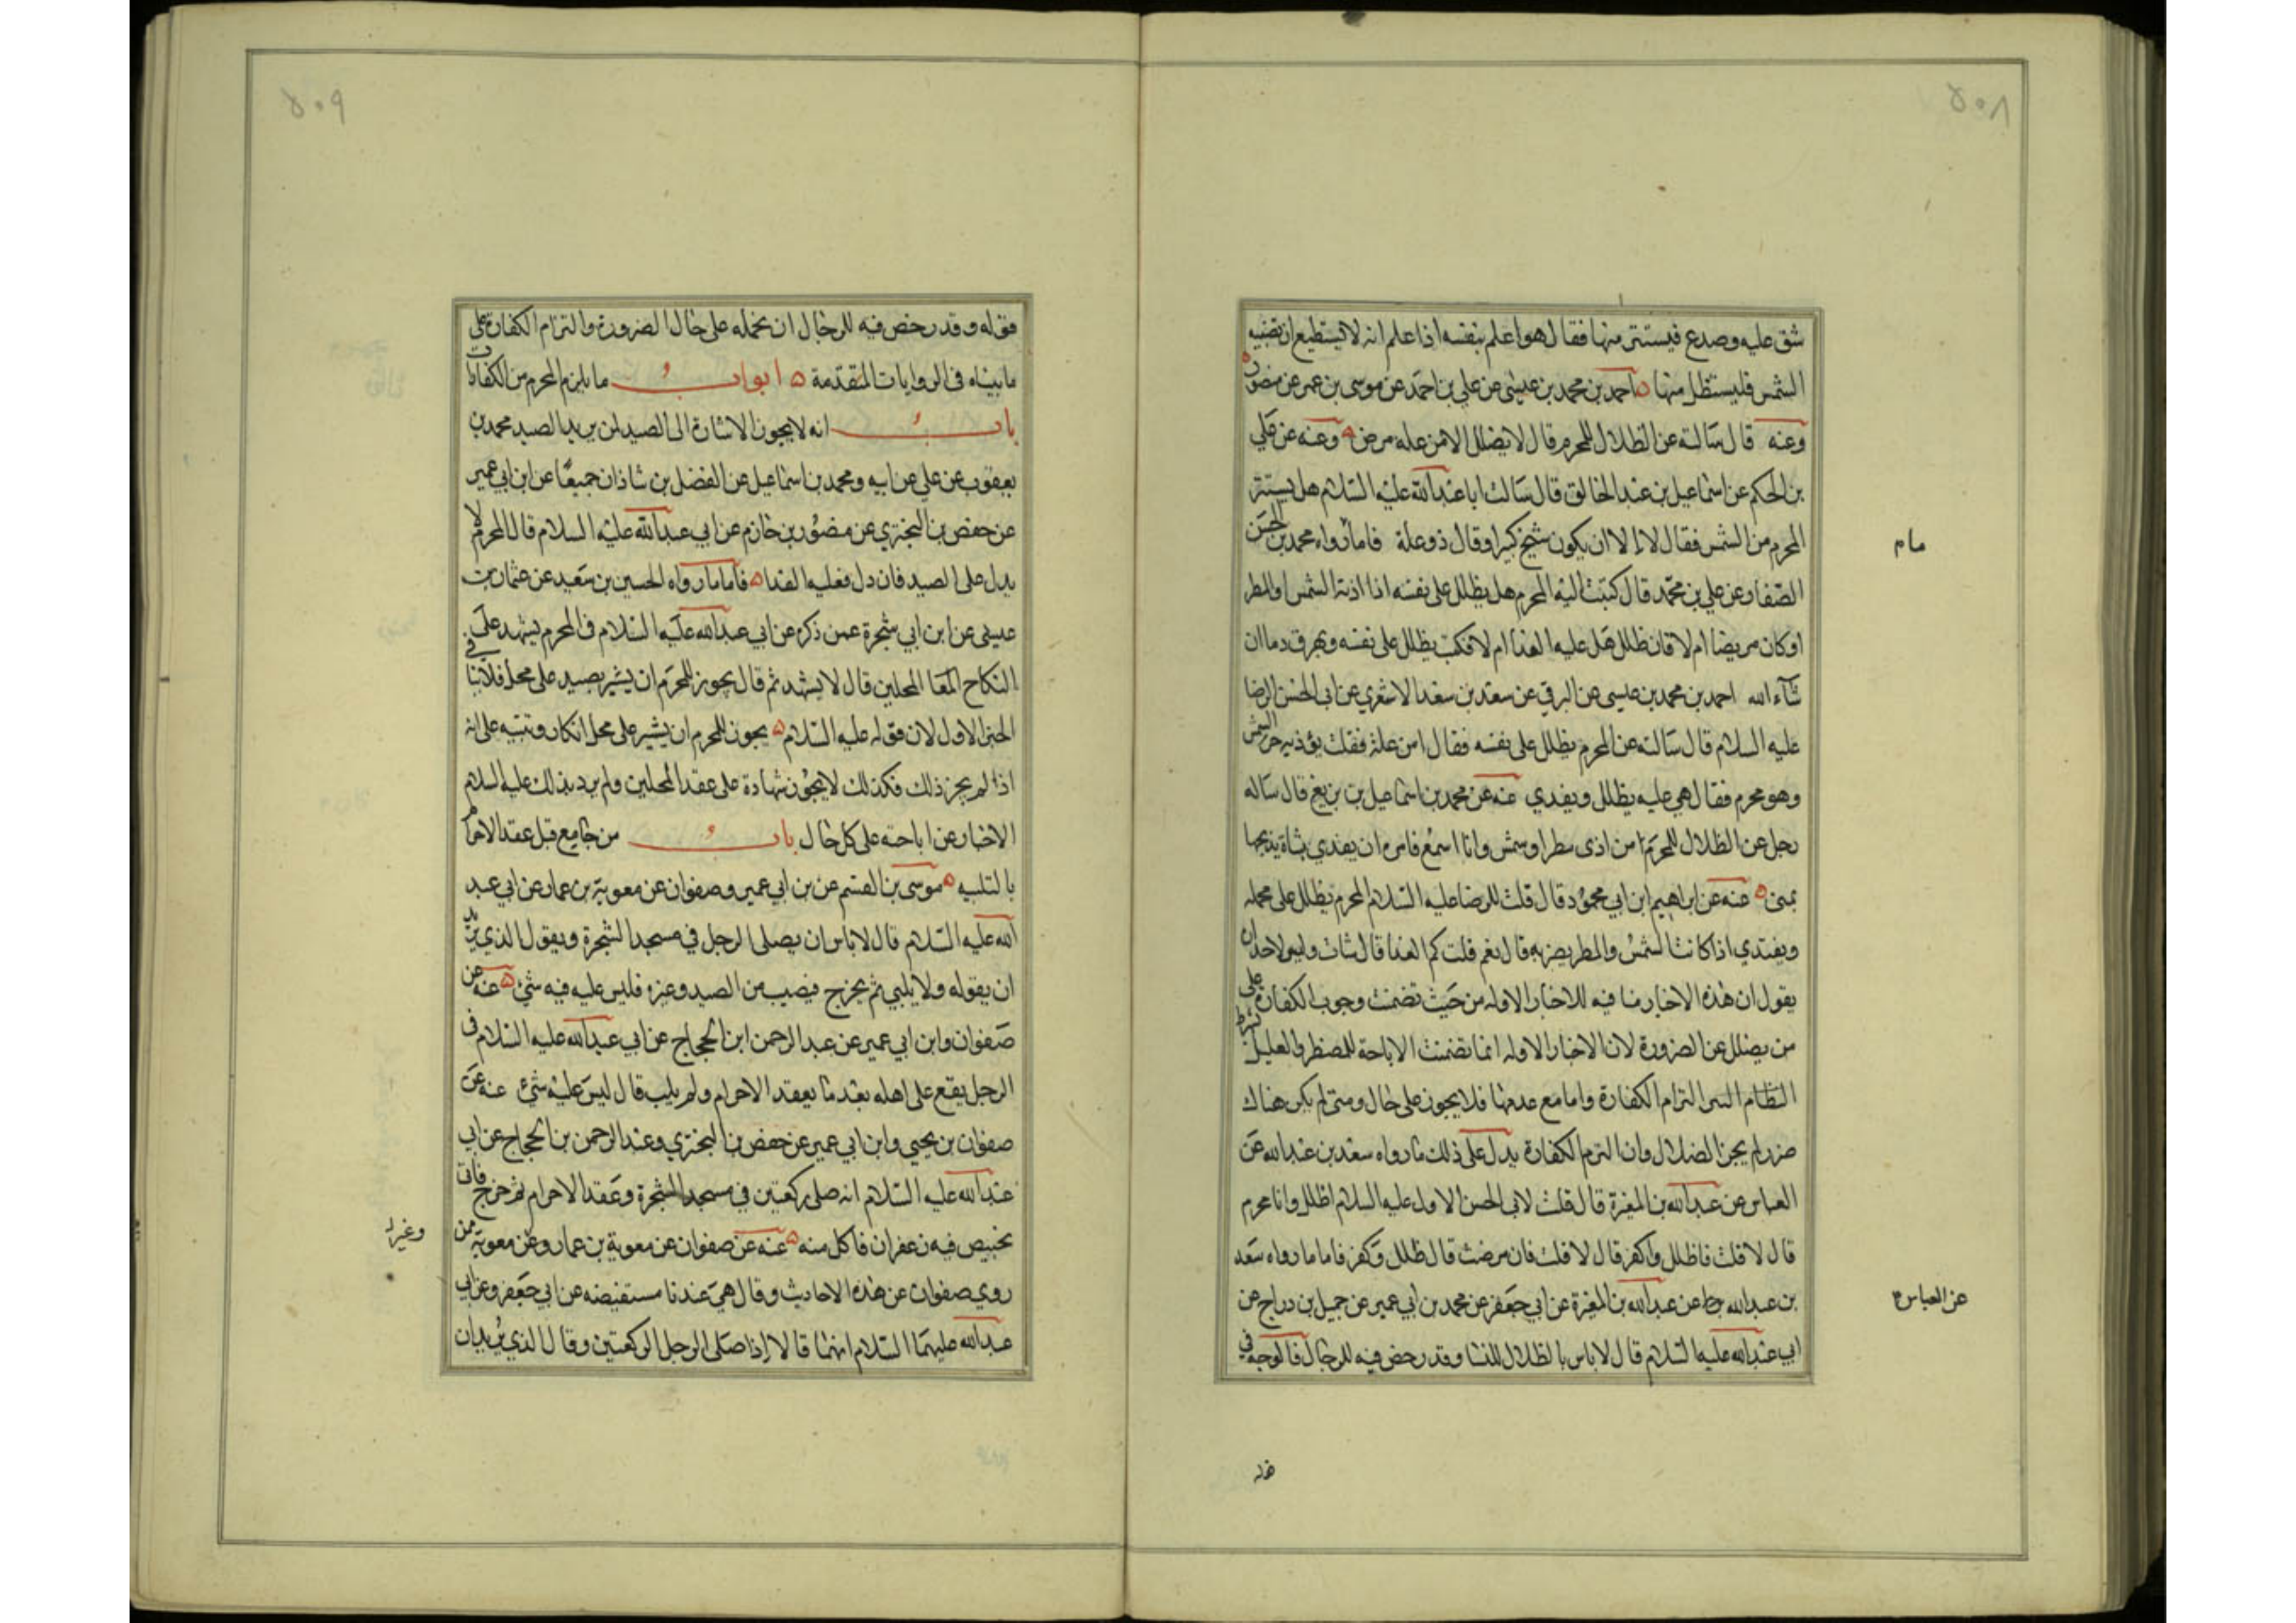 ٥٠٨
شق عليه وصدع فيستتر منها فقال هو اعلم بنفسه اذا علم انه لا يستطيع ان تصيبه
الشمس فليستظل منها احمد بن محمد بن عيسى عن علي بن احمد عن موسى بن عمر عن منصور
وعنه قال سالته عن الظلال للمحرم قال لا يضلل الا من عله مرض وعنه عن علي
بن الحكم عن اسماعيل بن عبد الخالق قال سالت ابا عبد الله عليه السلام هل يستتر
المحرم من الشمس فقال لا الا ان يكون شيخ كبيرا وقال ذو علة فاما رواه محمد بن الحسن
مام
الصفار عن علي بن محمد قال كتبت اليه المحرم هل يظلل على نفسه اذا اذته الشمس او المطر
او كان مريضا ام لا فان ظلل هل عليه الفدا ام لا فكتب يظلل على نفسه ويهرق دما ان
شآء الله احمد بن محمد بن عيسى عن البرقي عن سعد بن سعد الاشعري عن ابي الحسن الرضا
عليه السلام قال سالته عن المحرم يظلل على نفسه فقال امن علة فقلت يؤذيه حر الشمس
وهو محرم فقال هي عليه يظلل ويفدي عنه عن محمد بن اسماعيل بن بزيع قال ساله
رجل عن الظلال للمحرم من اذى مطر او شمس وانا اسمع فامره ان يفدي بشاة يذبحها
بمنى عنه عن ابراهيم ابن ابي محمود قال قلت للرضا عليه السلام المحرم يظلل على محمله
ويفتدي اذا كانت الشمس والمطر يضر به قال نعم قلت كم الفدا قال شاة وليس لاحد ان
يقول ان هذه الاخبار منافيه للاخبار الاوله من حيث تضمنت وجوب الكفارة على
من يضلل عن الضرورة لان الاخبار الاوله انما تضمنت الاباحة للمضطر والعليل بشرط
التزام الكفارة واما مع عدمها فلا يجوز على حال ومتى لم يكن هناك
ضرر لم يجز الضلال وان التزم الكفارة يدل على ذلك ما رواه سعد بن عبد الله عن
العباس عن عبد الله بن المغيرة قال قلت لابي الحسن الاول عليه السلام اظلل وانا محرم
قال لا قلت فاظلل واكفر قال لا قلت فان مرضت قال ظلل وكفر فاما ما رواه سعد
بن عبد الله عن عبد الله بن المغيرة عن ابي جعفر عن محمد بن ابي عمير عن جميل بن دراج عن
عن العباس
ابي عبد الله عليه السلام قال لا باس بالظلال للنسا وقد رخص فيه للرجال فالوجه في
٥٠٩
قوله وقد رخص فيه للرجال ان نحمله على حال الضرورة والتزام الكفارة على
ما بيناه في الروايات المتقدمة ابواب ما يلزم المحرم من الكفارات
باب انه لا يجوز الاشارة الى الصيد لمن يريد الصيد محمد بن
يعقوب عن علي عن ابيه ومحمد بن اسماعيل عن الفضل بن شاذان جميعا عن ابن ابي عمير
عن حفص بن البختري عن منصور بن حازم عن ابي عبد الله عليه السلام قال المحرم لا
يدل على الصيد فان دل فعليه الفدا فاما ما رواه الحسين بن سعيد عن عثمان بن
عيسى عن ابن ابي شجرة عمن ذكره عن ابي عبد الله عليه السلام في المحرم يشهد على
النكاح المحلين قال لا يشهد ثم قال يجوز للمحرم ان يشير بصيد على محل فلا ينافي
الخبر الاول لان قوله عليه السلام يجوز للمحرم ان يشير على محل انكار وتنبيه على انه
اذا لم يجز ذلك فكذلك لا يجوز شهادة على عقد المحلين ولم يرد بذلك عليه السلام
الاخبار عن اباحته على كل حال باب من جامع قبل عقد الاحرام
بالتلبيه موسى بن القسم عن بن ابي عمير وصفوان عن معوية بن عمار عن ابي عبد
الله عليه السلام قال لا باس ان يصلي الرجل في مسجد الشجرة ويقول الذي يريد
ان يقوله ولا يلبي ثم يخرج فيصيب من الصيد وغيره فليس عليه فيه شئ عنه عن
صفوان وابن ابي عمير عن عبد الرحمن ابن الحجاج عن ابي عبد الله عليه السلام في
الرجل يقع على اهله بعد ما يعقد الاحرام ولم يلب قال ليس عليه شئ عنه عن
صفوان بن يحيى وابن ابي عمير عن حفص بن البختري وعبد الرحمن بن الحجاج عن ابي
عبد الله عليه السلام انه صلى ركعتين في مسجد الشجرة وعقد الاحرام ثم خرج فاتى
بخبيص فيه زعفران فاكل منه عنه عن صفوان عن معوية بن عمار وعن معوية ممن
روى صفوان عن هذه الاحاديث وقال هي عندنا مستفيضه عن ابي جعفر وعن ابي
عبد الله عليهما السلام انهما قالا اذا صلى الرجل الركعتين وقال الذي يريد ان